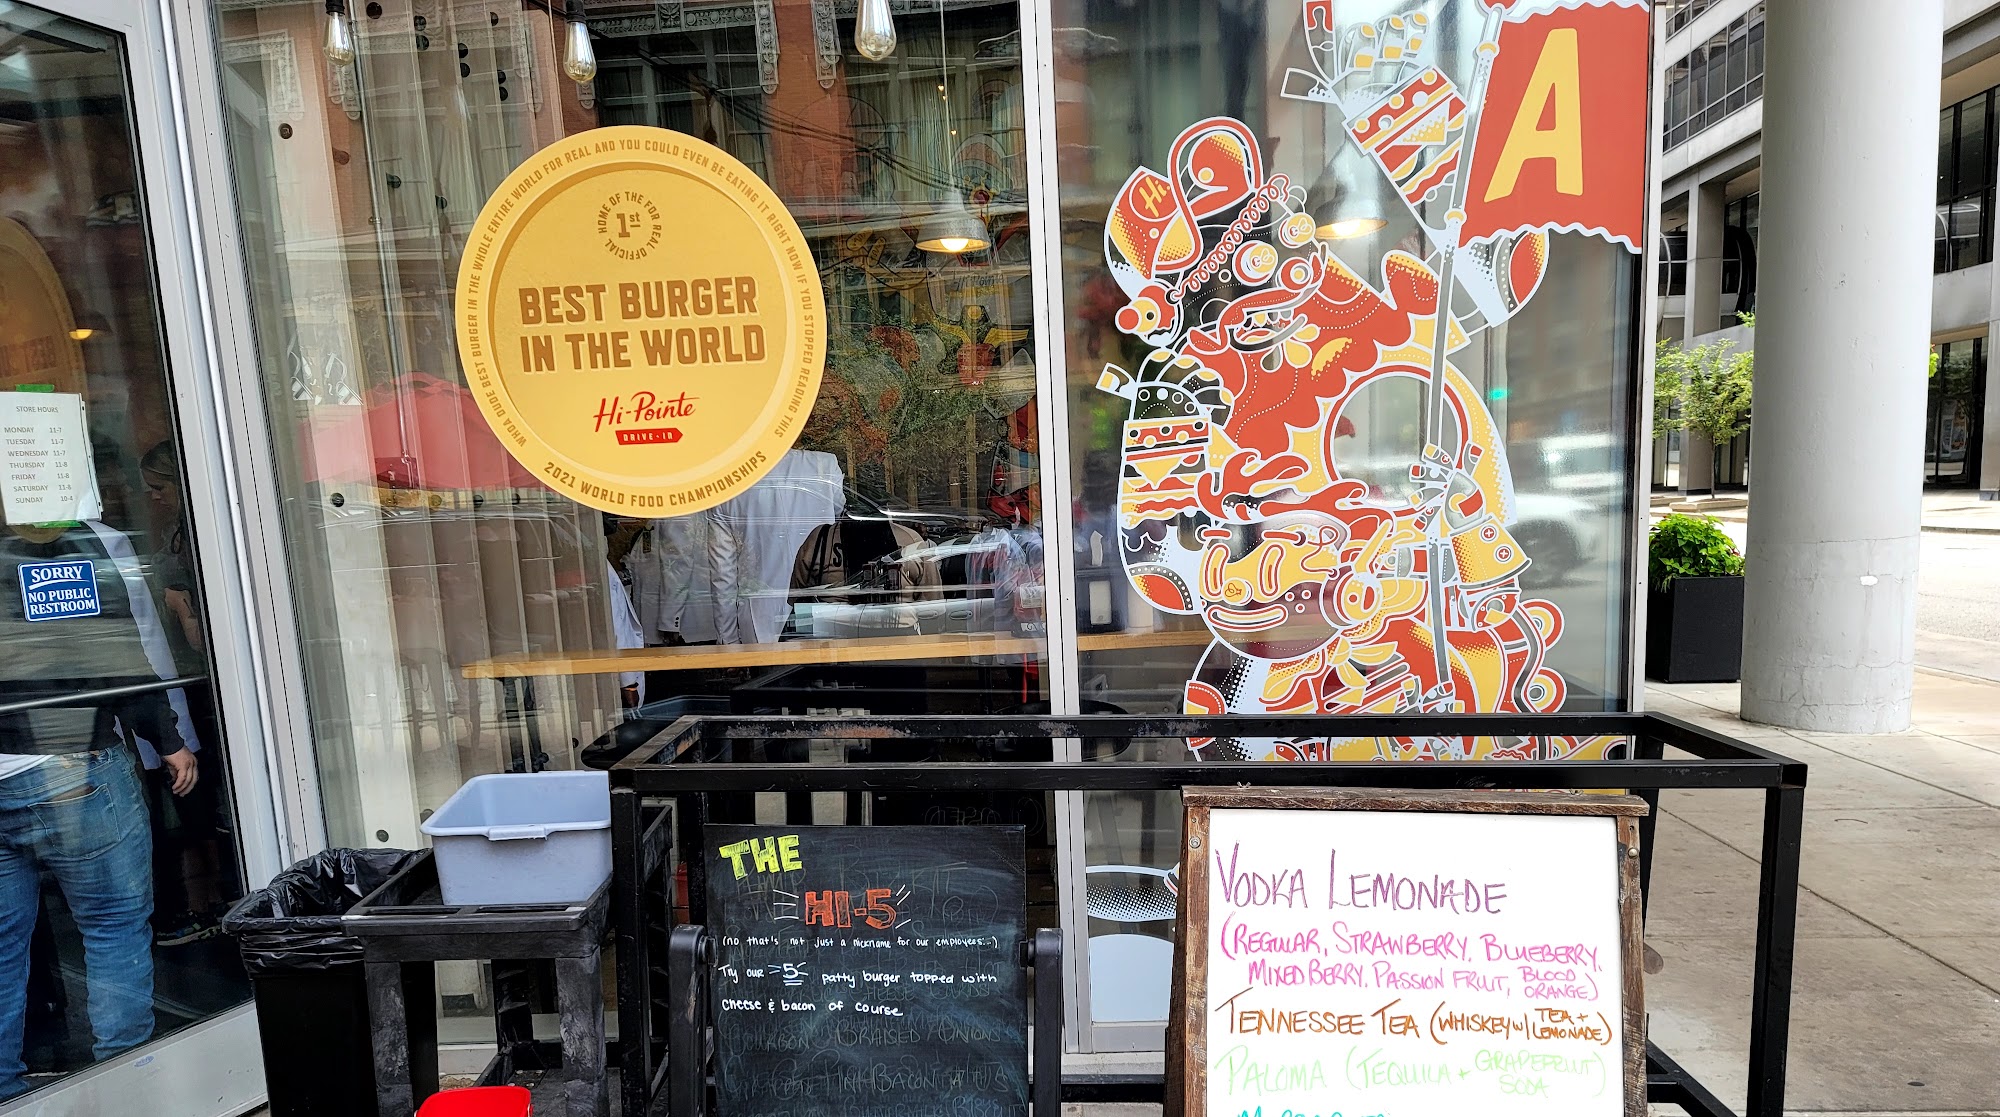 STORE HOURS
MONDAY 11-7
TUESDAY 11-7
WEDNESDAY 11-7
THURSDAY 11-8
FRIDAY 11-8
SATURDAY 11-8
SUNDAY 10-4
SORRY
NO PUBLIC
RESTROOM
WHOA DUDE BEST BURGER IN THE WHOLE ENTIRE WORLD FOR REAL AND YOU COULD EVEN BE EATING IT RIGHT NOW IF YOU STOPPED READING THIS
HOME OF THE FOR REAL OFFICIAL
1st
BEST BURGER
IN THE WORLD
Hi-Pointe
DRIVE-IN
2021 WORLD FOOD CHAMPIONSHIPS
Hi.
A
THE
HI-5
(no that's not just a nickname for our employees...)
Try our 5 patty burger topped with
cheese & bacon of course
VODKA LEMONADE
(REGULAR, STRAWBERRY, BLUEBERRY,
MIXED BERRY, PASSION FRUIT, BLOOD ORANGE)
TENNESSEE TEA (WHISKEY W/ TEA + LEMONADE)
PALOMA (TEQUILA + GRAPEFRUIT SODA)